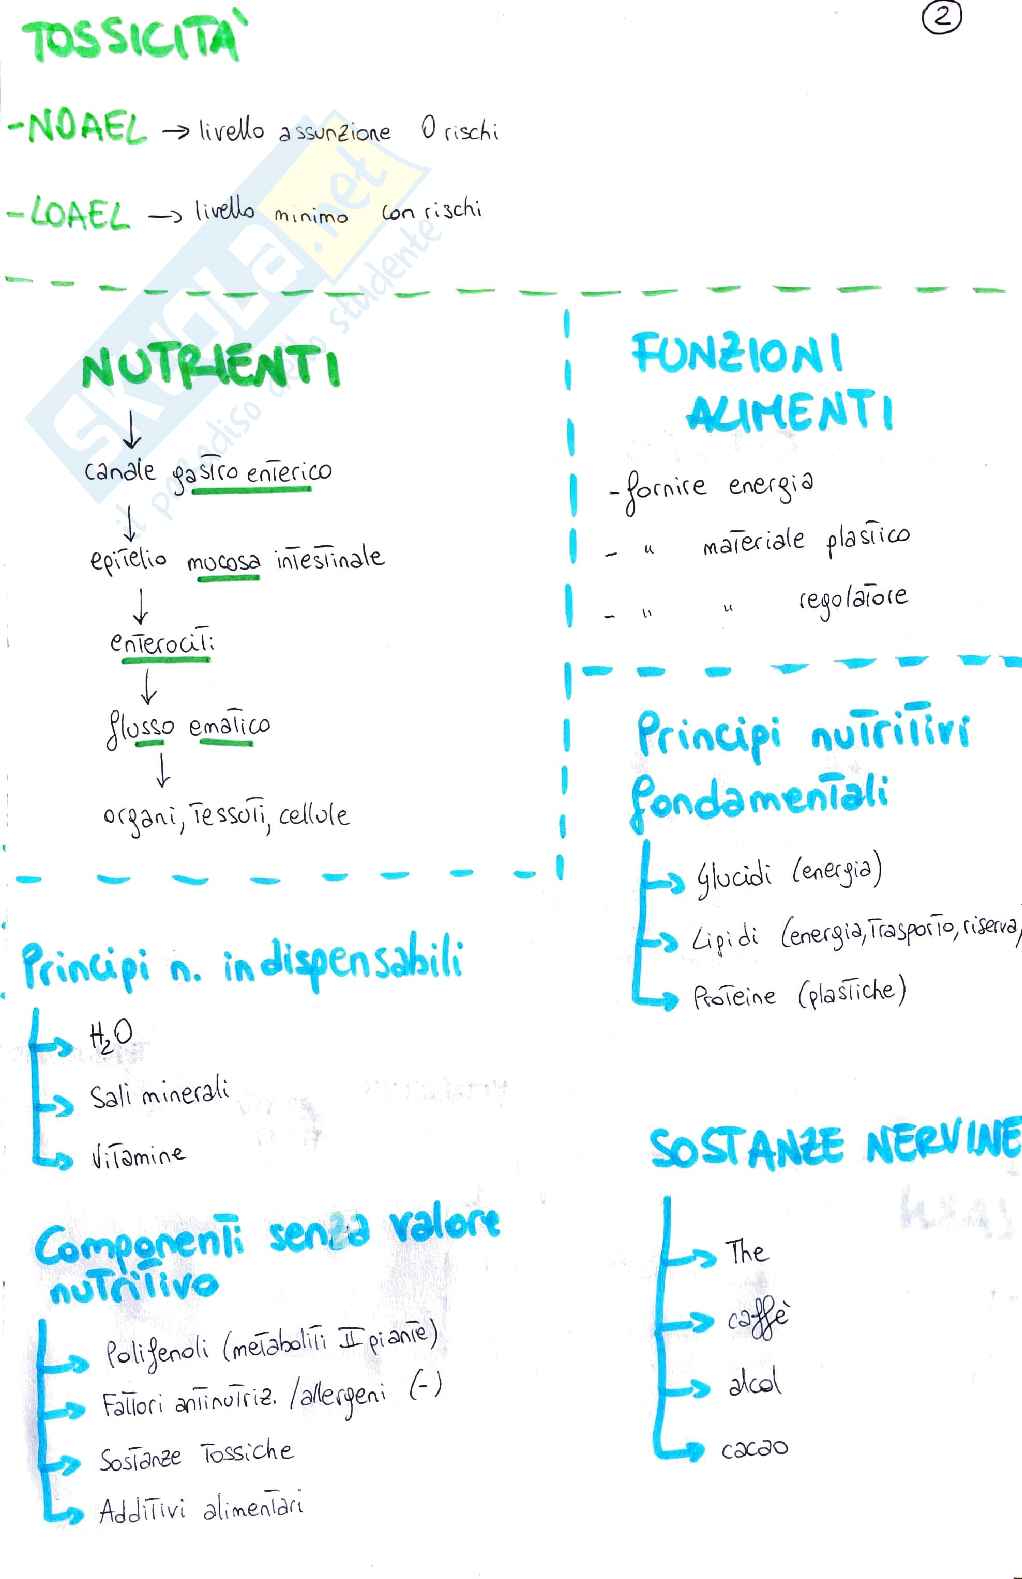 2
TOSSICITÀ
- NOAEL → livello assunzione 0 rischi
- LOAEL → livello minimo con rischi
SKUOLA.net
il paradiso dello studente
NUTRIENTI
↓
canale gastro enterico
↓
epitelio mucosa intestinale
↓
enterociti
↓
flusso ematico
↓
organi, tessuti, cellule
FUNZIONI
ALIMENTI
- fornire energia
- " materiale plastico
- " " regolatore
Principi nutritivi
fondamentali
→ Glucidi (energia)
→ Lipidi (energia, trasporto, riserva,
→ Proteine (plastiche)
Principi n. indispensabili
→ H₂O
→ Sali minerali
→ Vitamine
Componenti senza valore
nutritivo
→ Polifenoli (metaboliti II piante)
→ Fattori antinutriz. /allergeni (-)
→ Sostanze tossiche
→ Additivi alimentari
SOSTANZE NERVINE
→ The
→ caffè
→ alcol
→ cacao